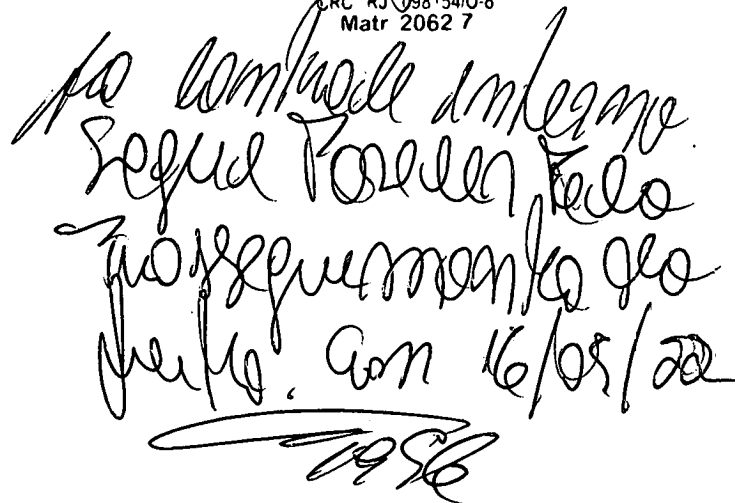 CRC RJ 098154/O-8
Matr 2062 7
Ao controle interno.
Segue Parecer Pelo
prosseguimento do
feito. Em 16/05/22